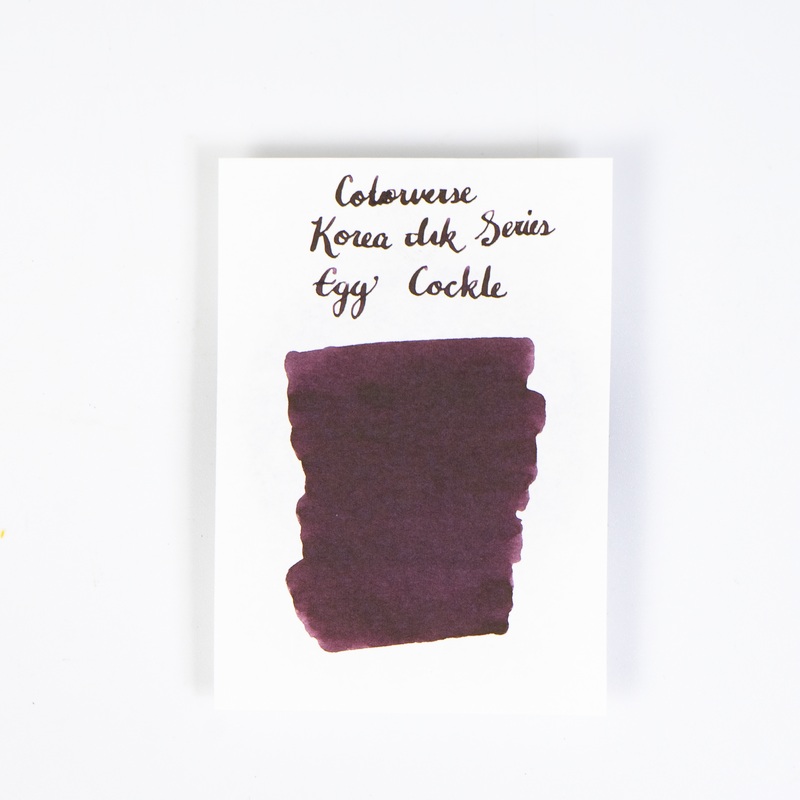 Colorverse
Korea Ink Series
Egg Cockle